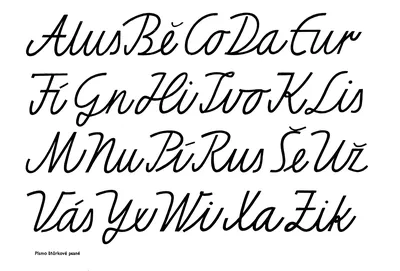 AlusBěCoDaEur
FíGnHiIvoKLis
MNuPíRusŠeUž
VásYvWiXaZik
Písmo štůrkové psané